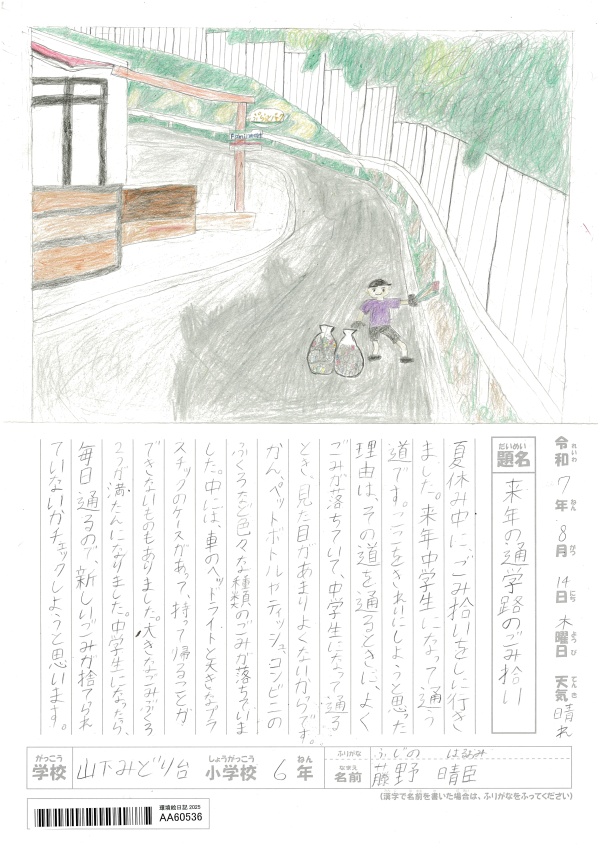 FamilyMart
令和7年8月14日木曜日 天気晴れ
れいわ ねん がつ にち ようび てんき
だいめい
題名 来年の通学路のごみ拾い
夏休み中に、ごみ拾いをしに行き
ました。来年中学生になって通う
道です。ここをきれいにしようと思った
理由は、その道を通るときに、よく
ごみが落ちていて、中学生になって通る
とき、見た目があまりよくないからです。
かんペットボトルやティッシュ、コンビニの
ふくろなど色々な種類のごみが落ちていま
した。中には、車のヘッドライトと大きなプラ
スチックのケースがあって、持って帰ることが
できないものもありました。大きなごみぶくろ
2つが満たんになりました。中学生になったら、
毎日通るので、新しいごみが捨てられ
ていないかチェックしようと思います。
がっこう しょうがっこう ねん
学校 山下みどり台 小学校 6年
ふりがな ふじの はるおみ
なまえ
名前 藤野 晴臣
(漢字で名前を書いた場合は、ふりがなをふってください)
環境絵日記 2025
AA60536